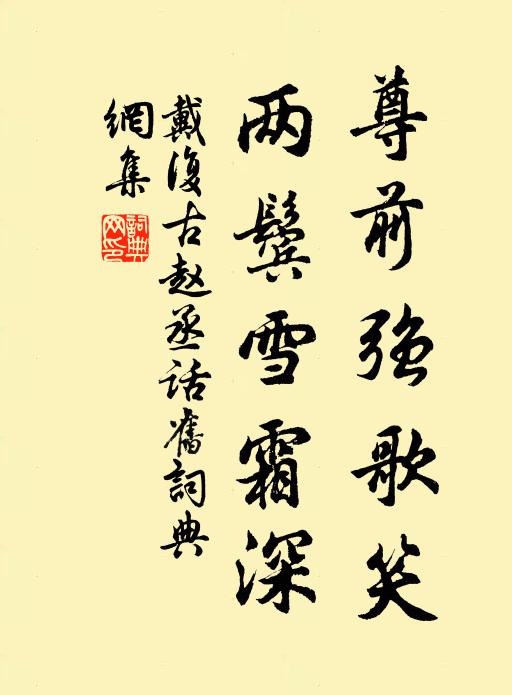 尊前强歌笑
两鬓雪霜深
戴復古赵丞话舊詞典
網集
詞典
网印